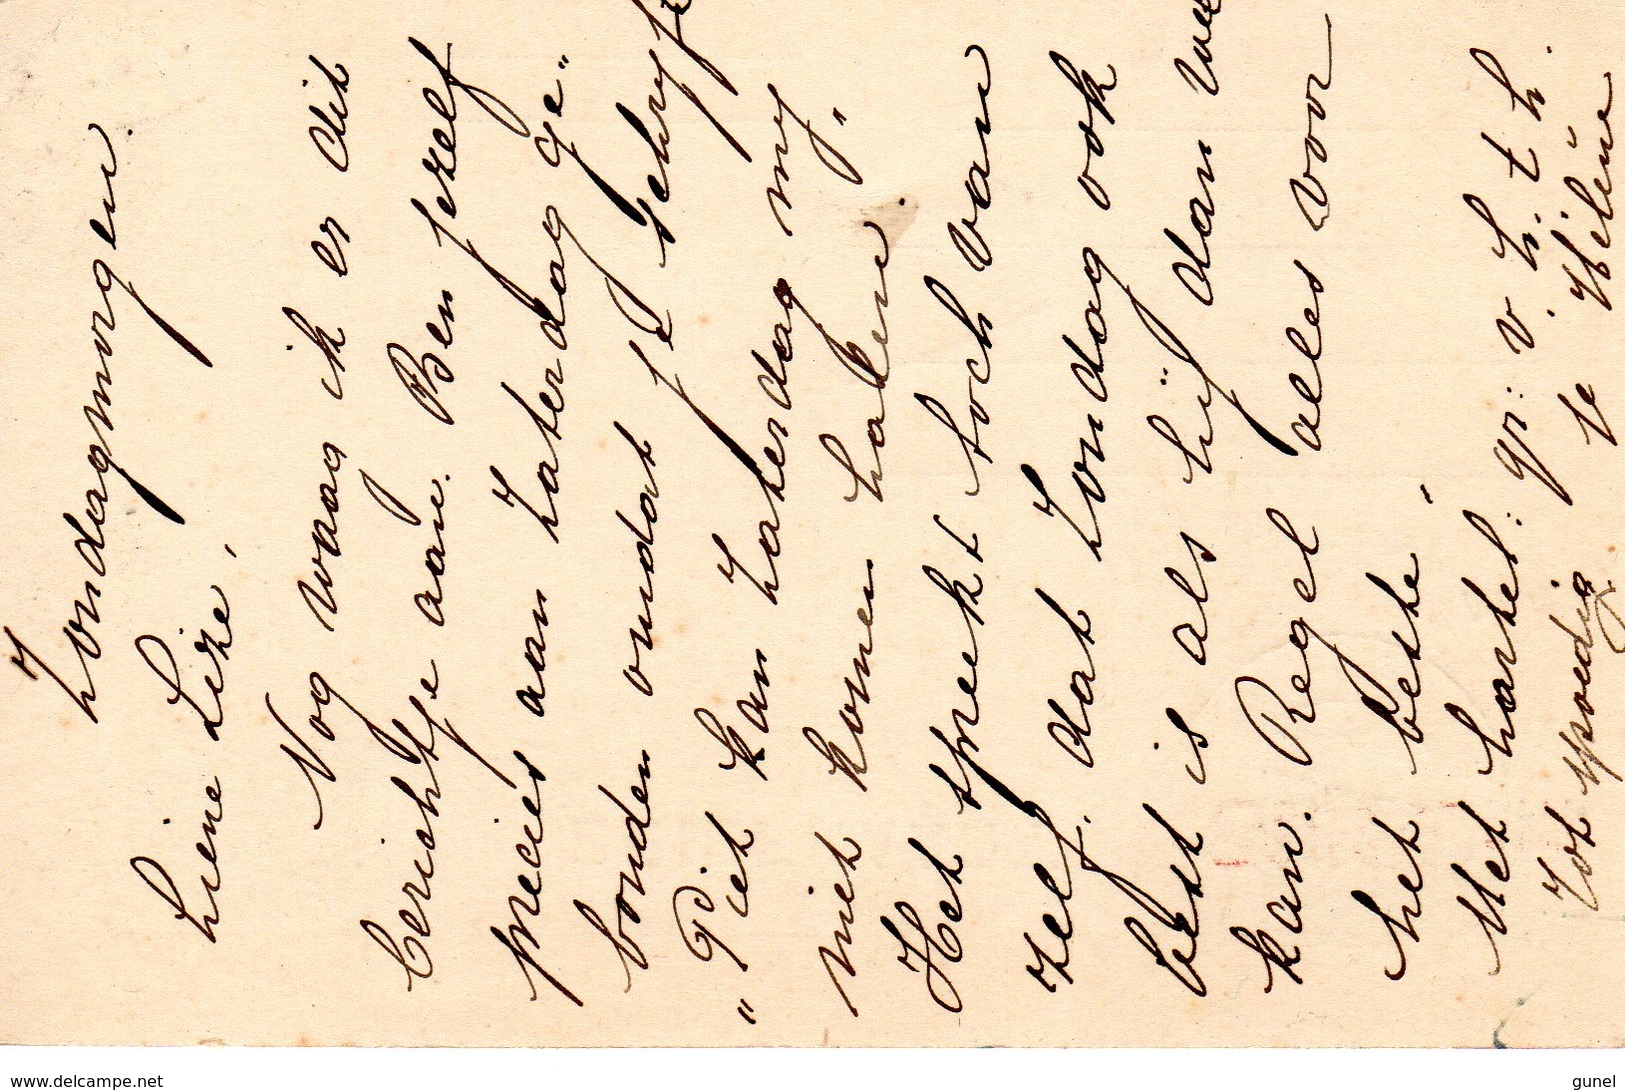 Zondagmorgen.
Liene Lize,
Nog waag ik er dit
berichtje aan. Ben jezelf
precies aan Zaterdag ge„
bonden omdat je schryft
"Piet kan Zaterdag my„
niet komen halen.
Het spreekt toch van
zelf. dat Zondag ook
best is als hij dan wee
kan. Regel alles voor
het beste,
Met hartel: gr: v. h. t. h.
Tot spoedig je Hélène
www.delcampe.net
gunel